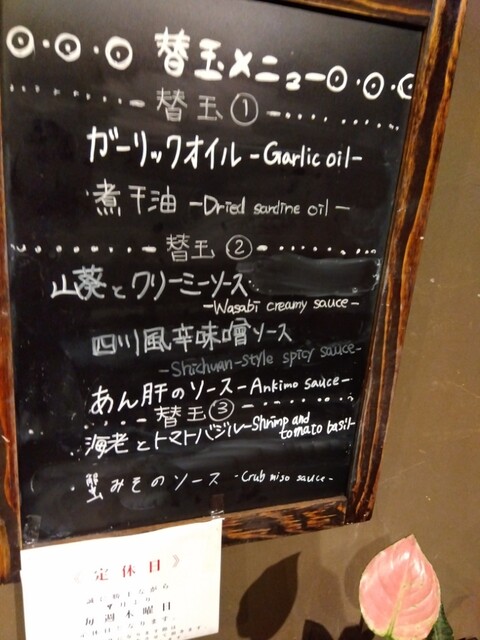 替玉メニュー
替玉①
ガーリックオイル -Garlic oil-
煮干油 -Dried sardine oil-
替玉②
山葵とクリーミーソース
-Wasabi creamy sauce-
四川風辛味噌ソース
-Shichuan-style spicy sauce-
あん肝のソース -Ankimo sauce-
替玉③
海老とトマトバジル -Shrimp and
tomato basil-
蟹みそのソース -Crab miso sauce-
《定休日》
誠に勝手ながら
毎週木曜日